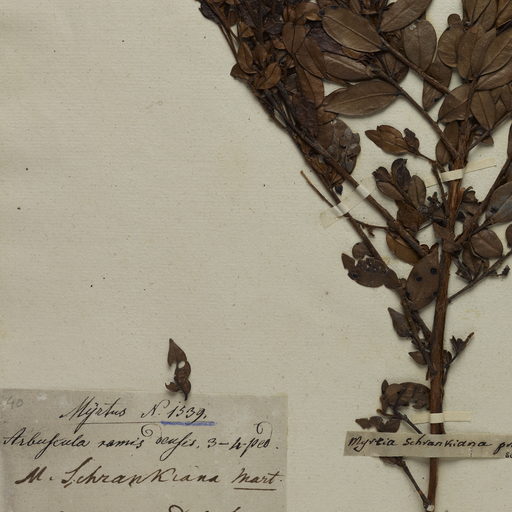 40
Myrtus N. 1339.
Arbuscula ramis densis. 3-4-ped.
M. Schrankiana Mart.
Myrcia Schrankiana